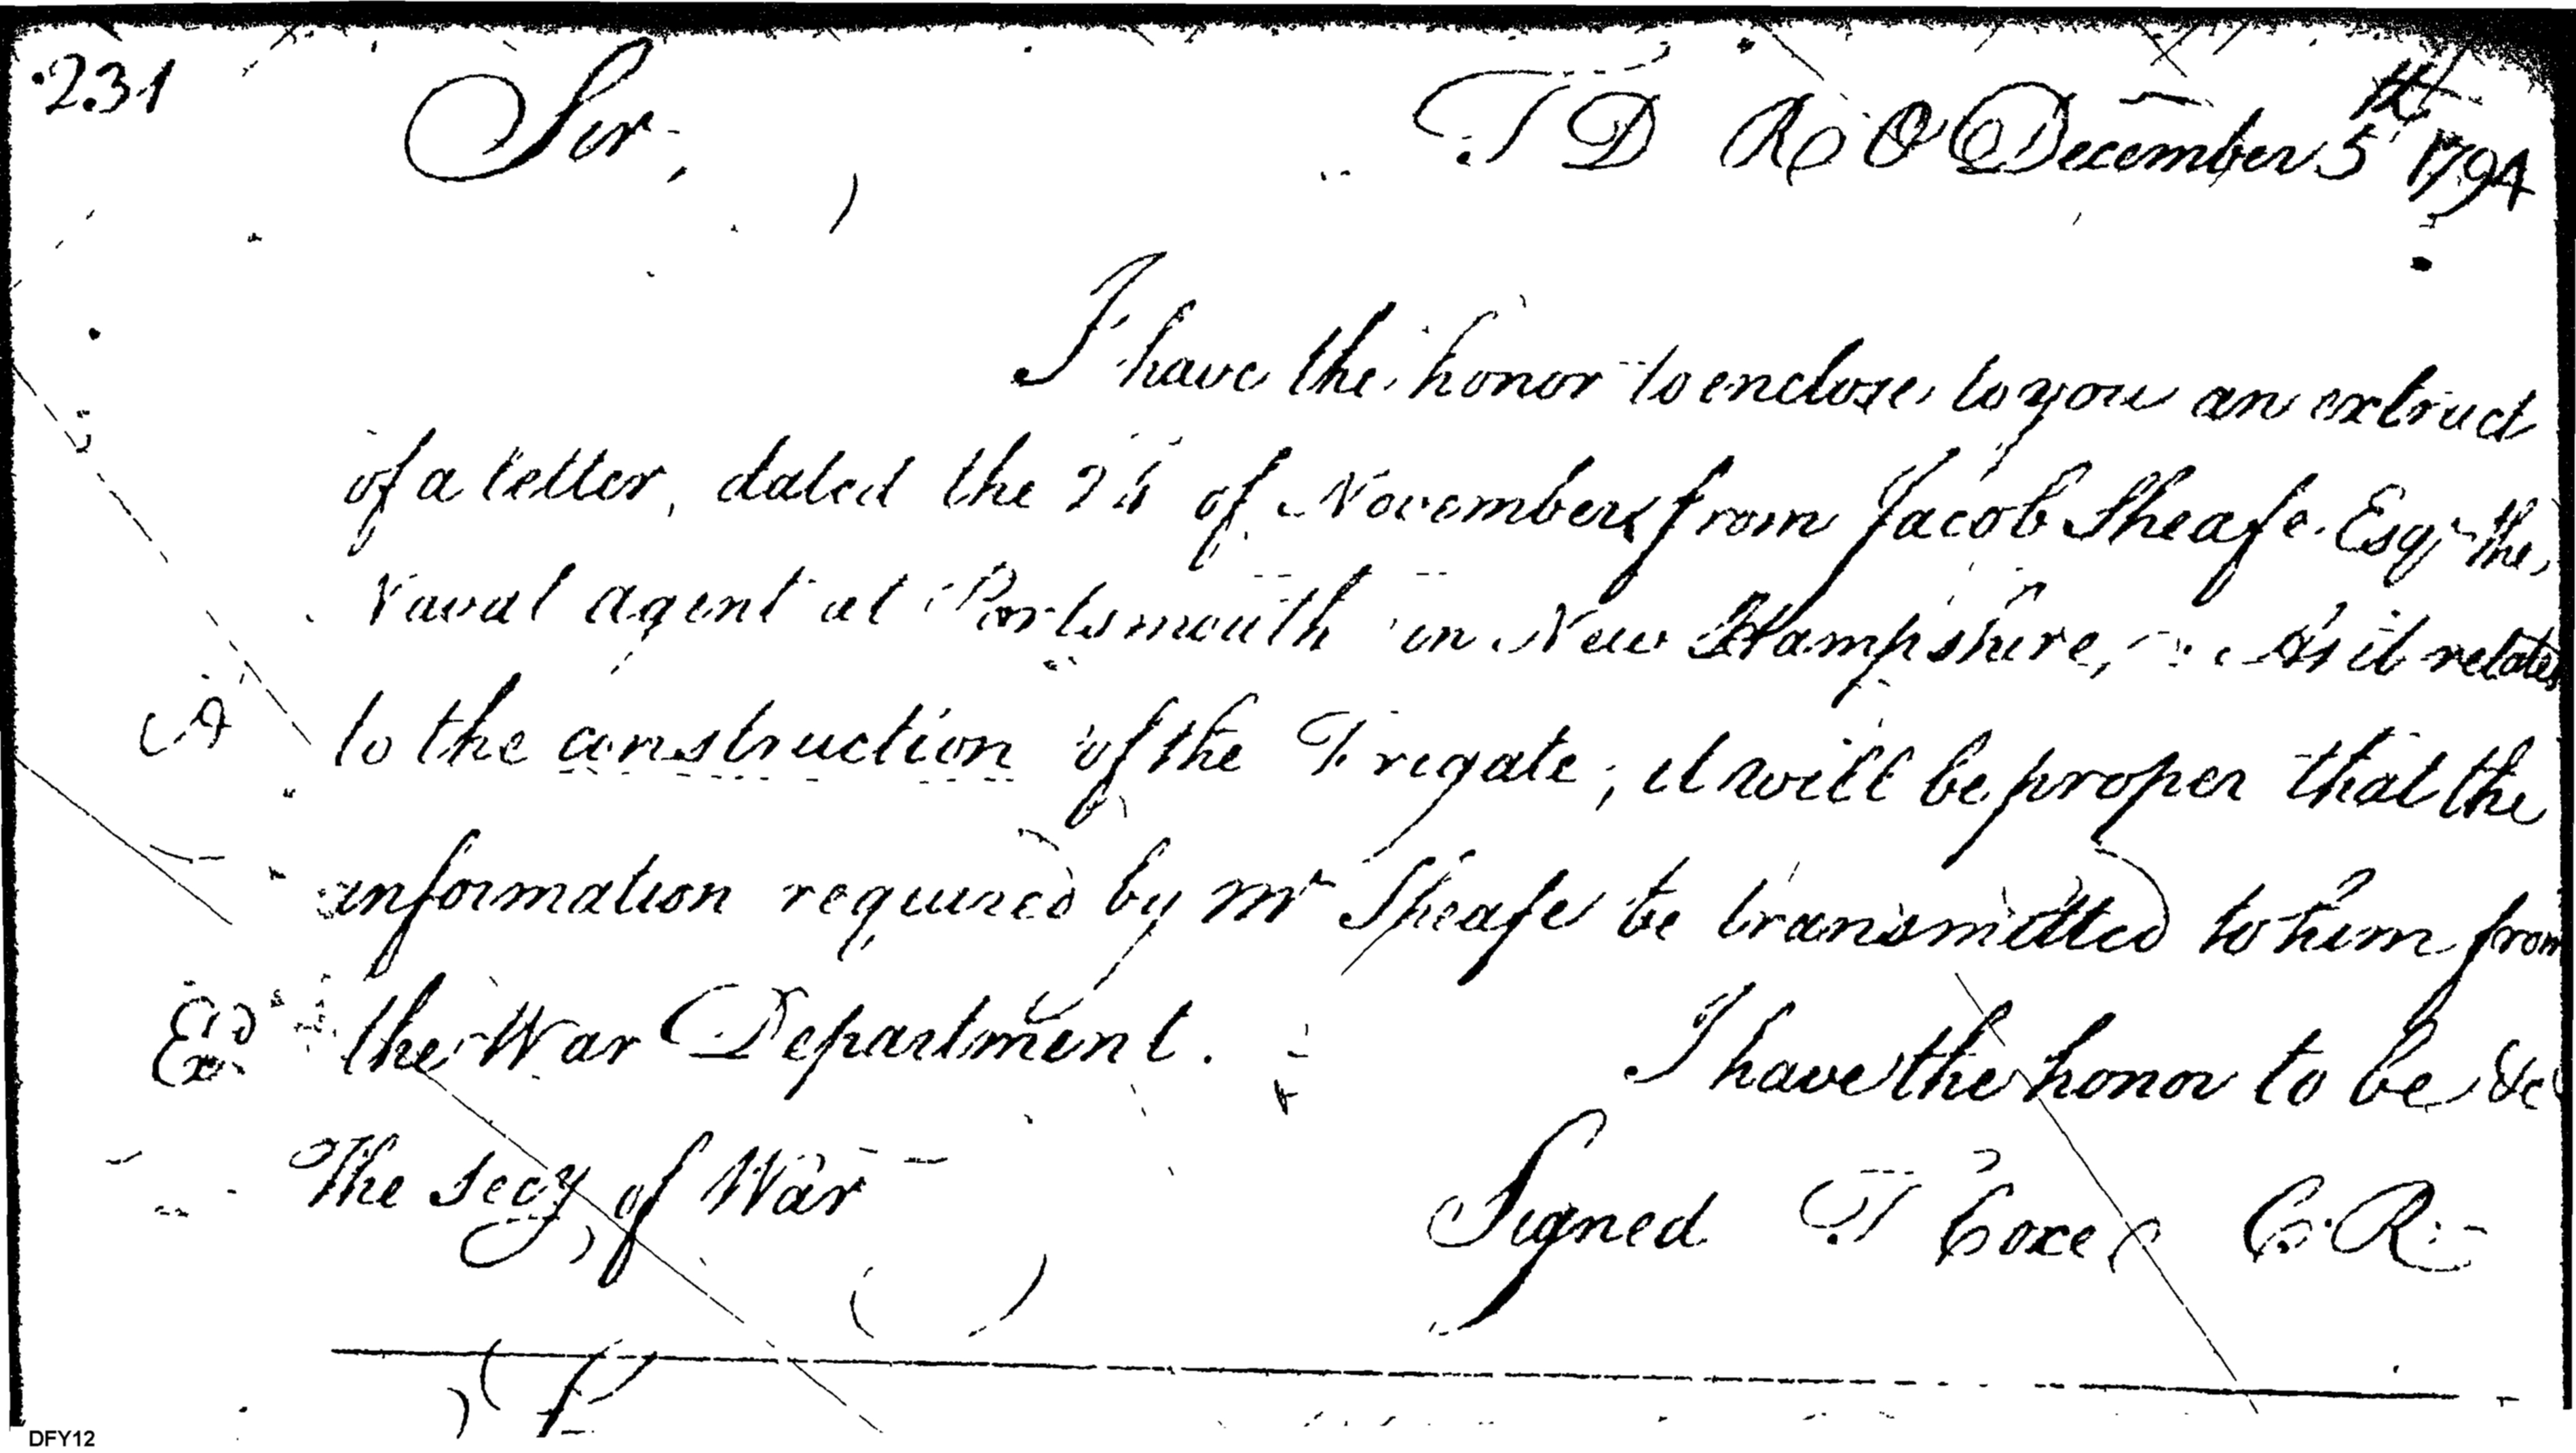 231
Sir, T D R O December 5th 1794
I have the honor to enclose to you an extract
of a letter, dated the of November from Jacob Sheafe Esqr the
Naval agent at Portsmouth in New Hampshire, As it relates
A to the construction of the Frigate; it will be proper that the
information required by Mr Sheafe be transmitted to him from
the War Department.
Ex I have the honor to be &c
The Secy of War
Signed T Coxe C. R.
DFY12